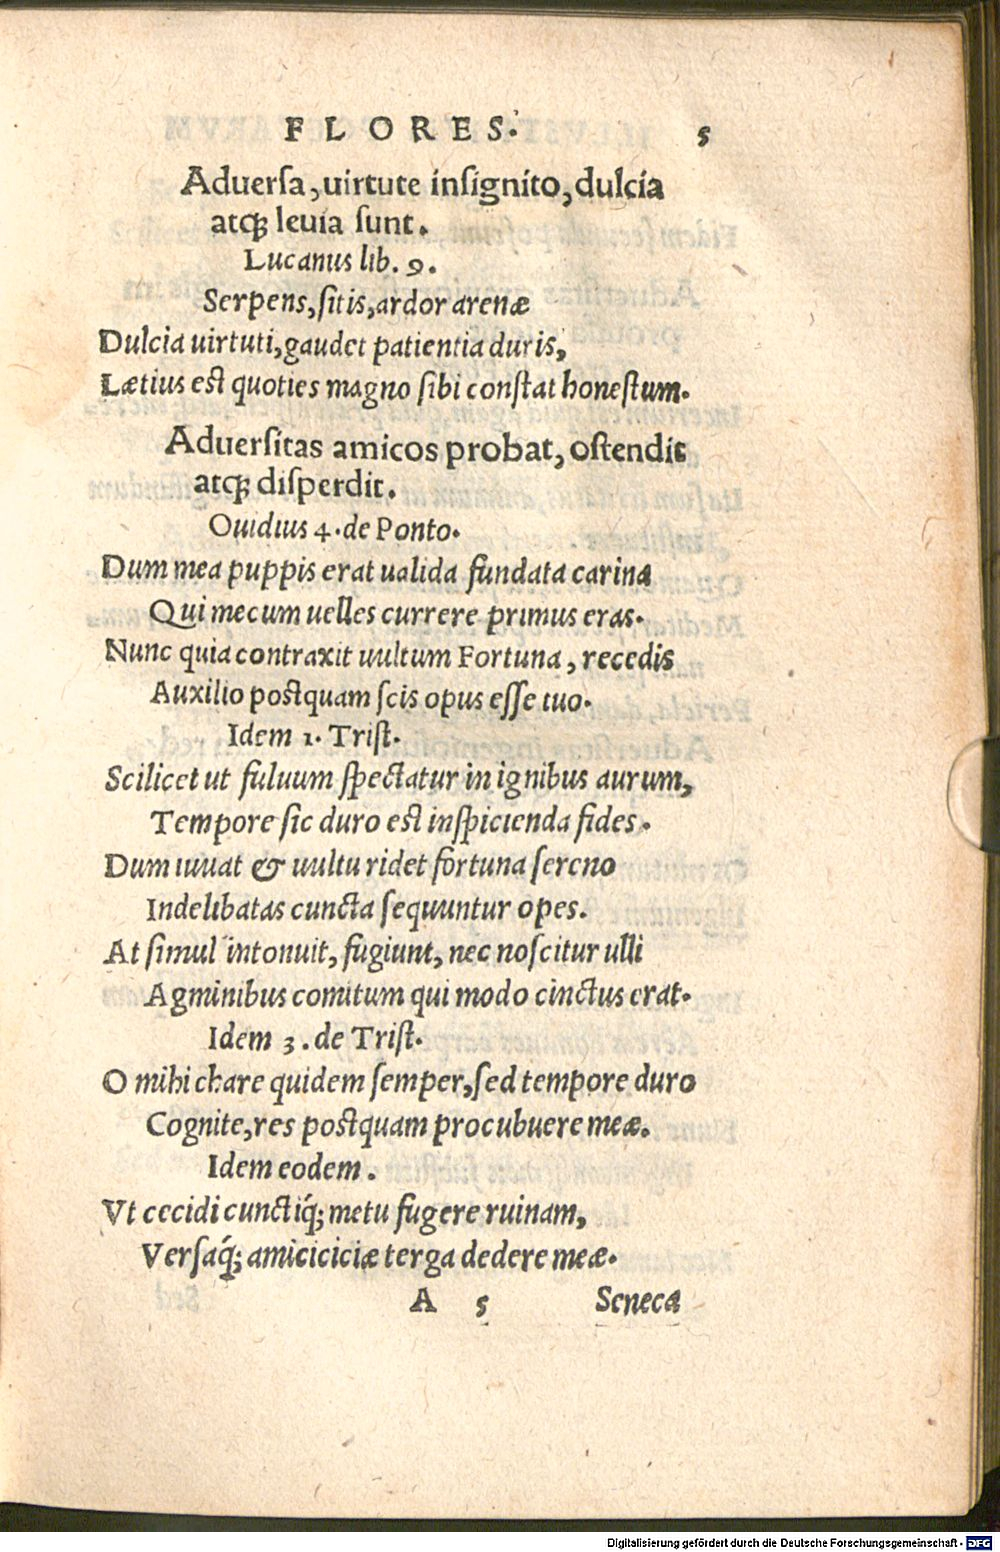 FLORES. 5
Aduersa, uirtute insignito, dulcia
atq; leuia sunt.
Lucanus lib. 9.
Serpens, sitis, ardor arenæ
Dulcia uirtuti, gaudet patientia duris,
Lætius est quoties magno sibi constat honestum.
Aduersitas amicos probat, ostendit
atq; disperdit.
Ouidius 4. de Ponto.
Dum mea puppis erat ualida fundata carina
Qui mecum uelles currere primus eras.
Nunc quia contraxit uultum Fortuna, recedis
Auxilio postquam scis opus esse tuo.
Idem 1. Trist.
Scilicet ut fuluum spectatur in ignibus aurum,
Tempore sic duro est inspicienda fides.
Dum iuuat & uultu ridet fortuna sereno
Indelibatas cuncta sequuntur opes.
At simul intonuit, fugiunt, nec noscitur ulli
Agminibus comitum qui modo cinctus erat.
Idem 3. de Trist.
O mihi chare quidem semper, sed tempore duro
Cognite, res postquam procubuere meæ.
Idem eodem.
Vt cecidi cunctiq́; metu fugere ruinam,
Versaq́; amiciciciæ terga dedere meæ.
A 5 Seneca
Digitalisierung gefördert durch die Deutsche Forschungsgemeinschaft - DFG